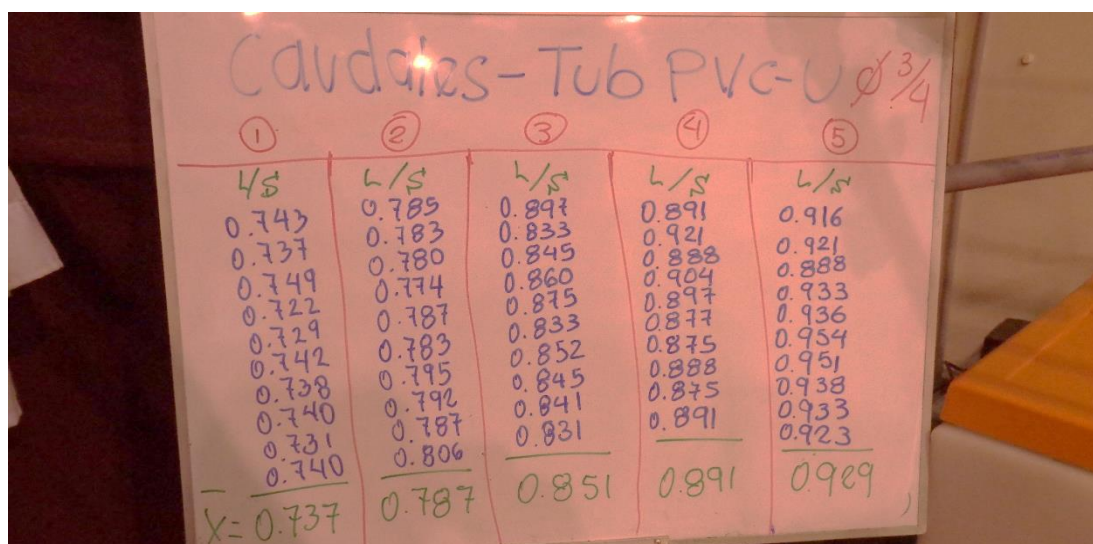 Caudales-Tub PVC-U Ø 3/4
1 2 3 4 5
L/S L/S L/S L/S L/S
0.743 0.785 0.897 0.891 0.916
0.737 0.783 0.833 0.921 0.921
0.749 0.780 0.845 0.888 0.888
0.722 0.774 0.860 0.904 0.933
0.729 0.787 0.875 0.897 0.936
0.742 0.783 0.833 0.877 0.954
0.738 0.795 0.852 0.875 0.951
0.740 0.792 0.845 0.888 0.938
0.731 0.787 0.841 0.875 0.933
0.740 0.806 0.831 0.891 0.923
X̄= 0.737 0.787 0.851 0.891 0.929